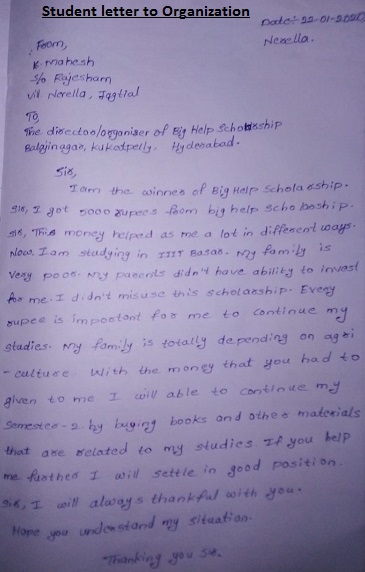 Student letter to Organization
Date:- 22-01-2020
Nerella.
From,
K mahesh
S/o Rajesham
vill Nerella, Jagtial
TO,
The director/organiser of Big Help Scholarship
Balajinagar, kukatpally, Hyderabad.
Sir,
I am the winner of Big Help Scholarship.
Sir, I got 5000 rupees from big help scholarship.
sir, This money helped as me a lot in different ways.
Now, I am studying in IIIT Basar. My family is
very poor. My parents didn't have ability to invest
for me. I didn't misuse this scholarship. Every
rupee is important for me to continue my
studies. My family is totally depending on agri
-culture. With the money that you had to
given to me I will able to continue my
semester-2 by buying books and other materials
that are related to my studies. If you help
me further I will settle in good position.
sir, I will always thankful with you.
Hope you understand my situation.
Thanking you sir.